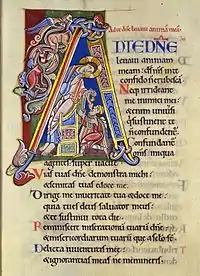 Ad te dñe levavi animã meã
AD TE DNE
levavi animam
meam: ds ms in te
confido n erubesca
Neq; irrideant
me inimici mei:
&enim univsi
qui sustinent te
n confundent
Confundant
oms iniqua
agentes: super vacue
Vias tuas dñe demonstra michi:
& semitas tuas edoce me.
Dirige me in veritate tua & doce me:
quia tu es deus salvator meus
& te sustinui tota die.
Reminiscere miserationū tuarū dñe:
& misericordiarum tuarū que a sclo st.
Delicta iuventutis mee:
& ignorantias meas ne memineris.